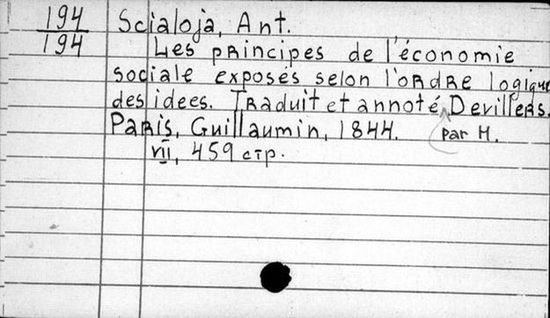 194
194
Scialoja, Ant.
Les principes de l'économie
sociale exposés selon l'ordre logique
des idees. Traduit et annoté Devillers.
par H.
Paris, Guillaumin, 1844.
VII, 459 стр.